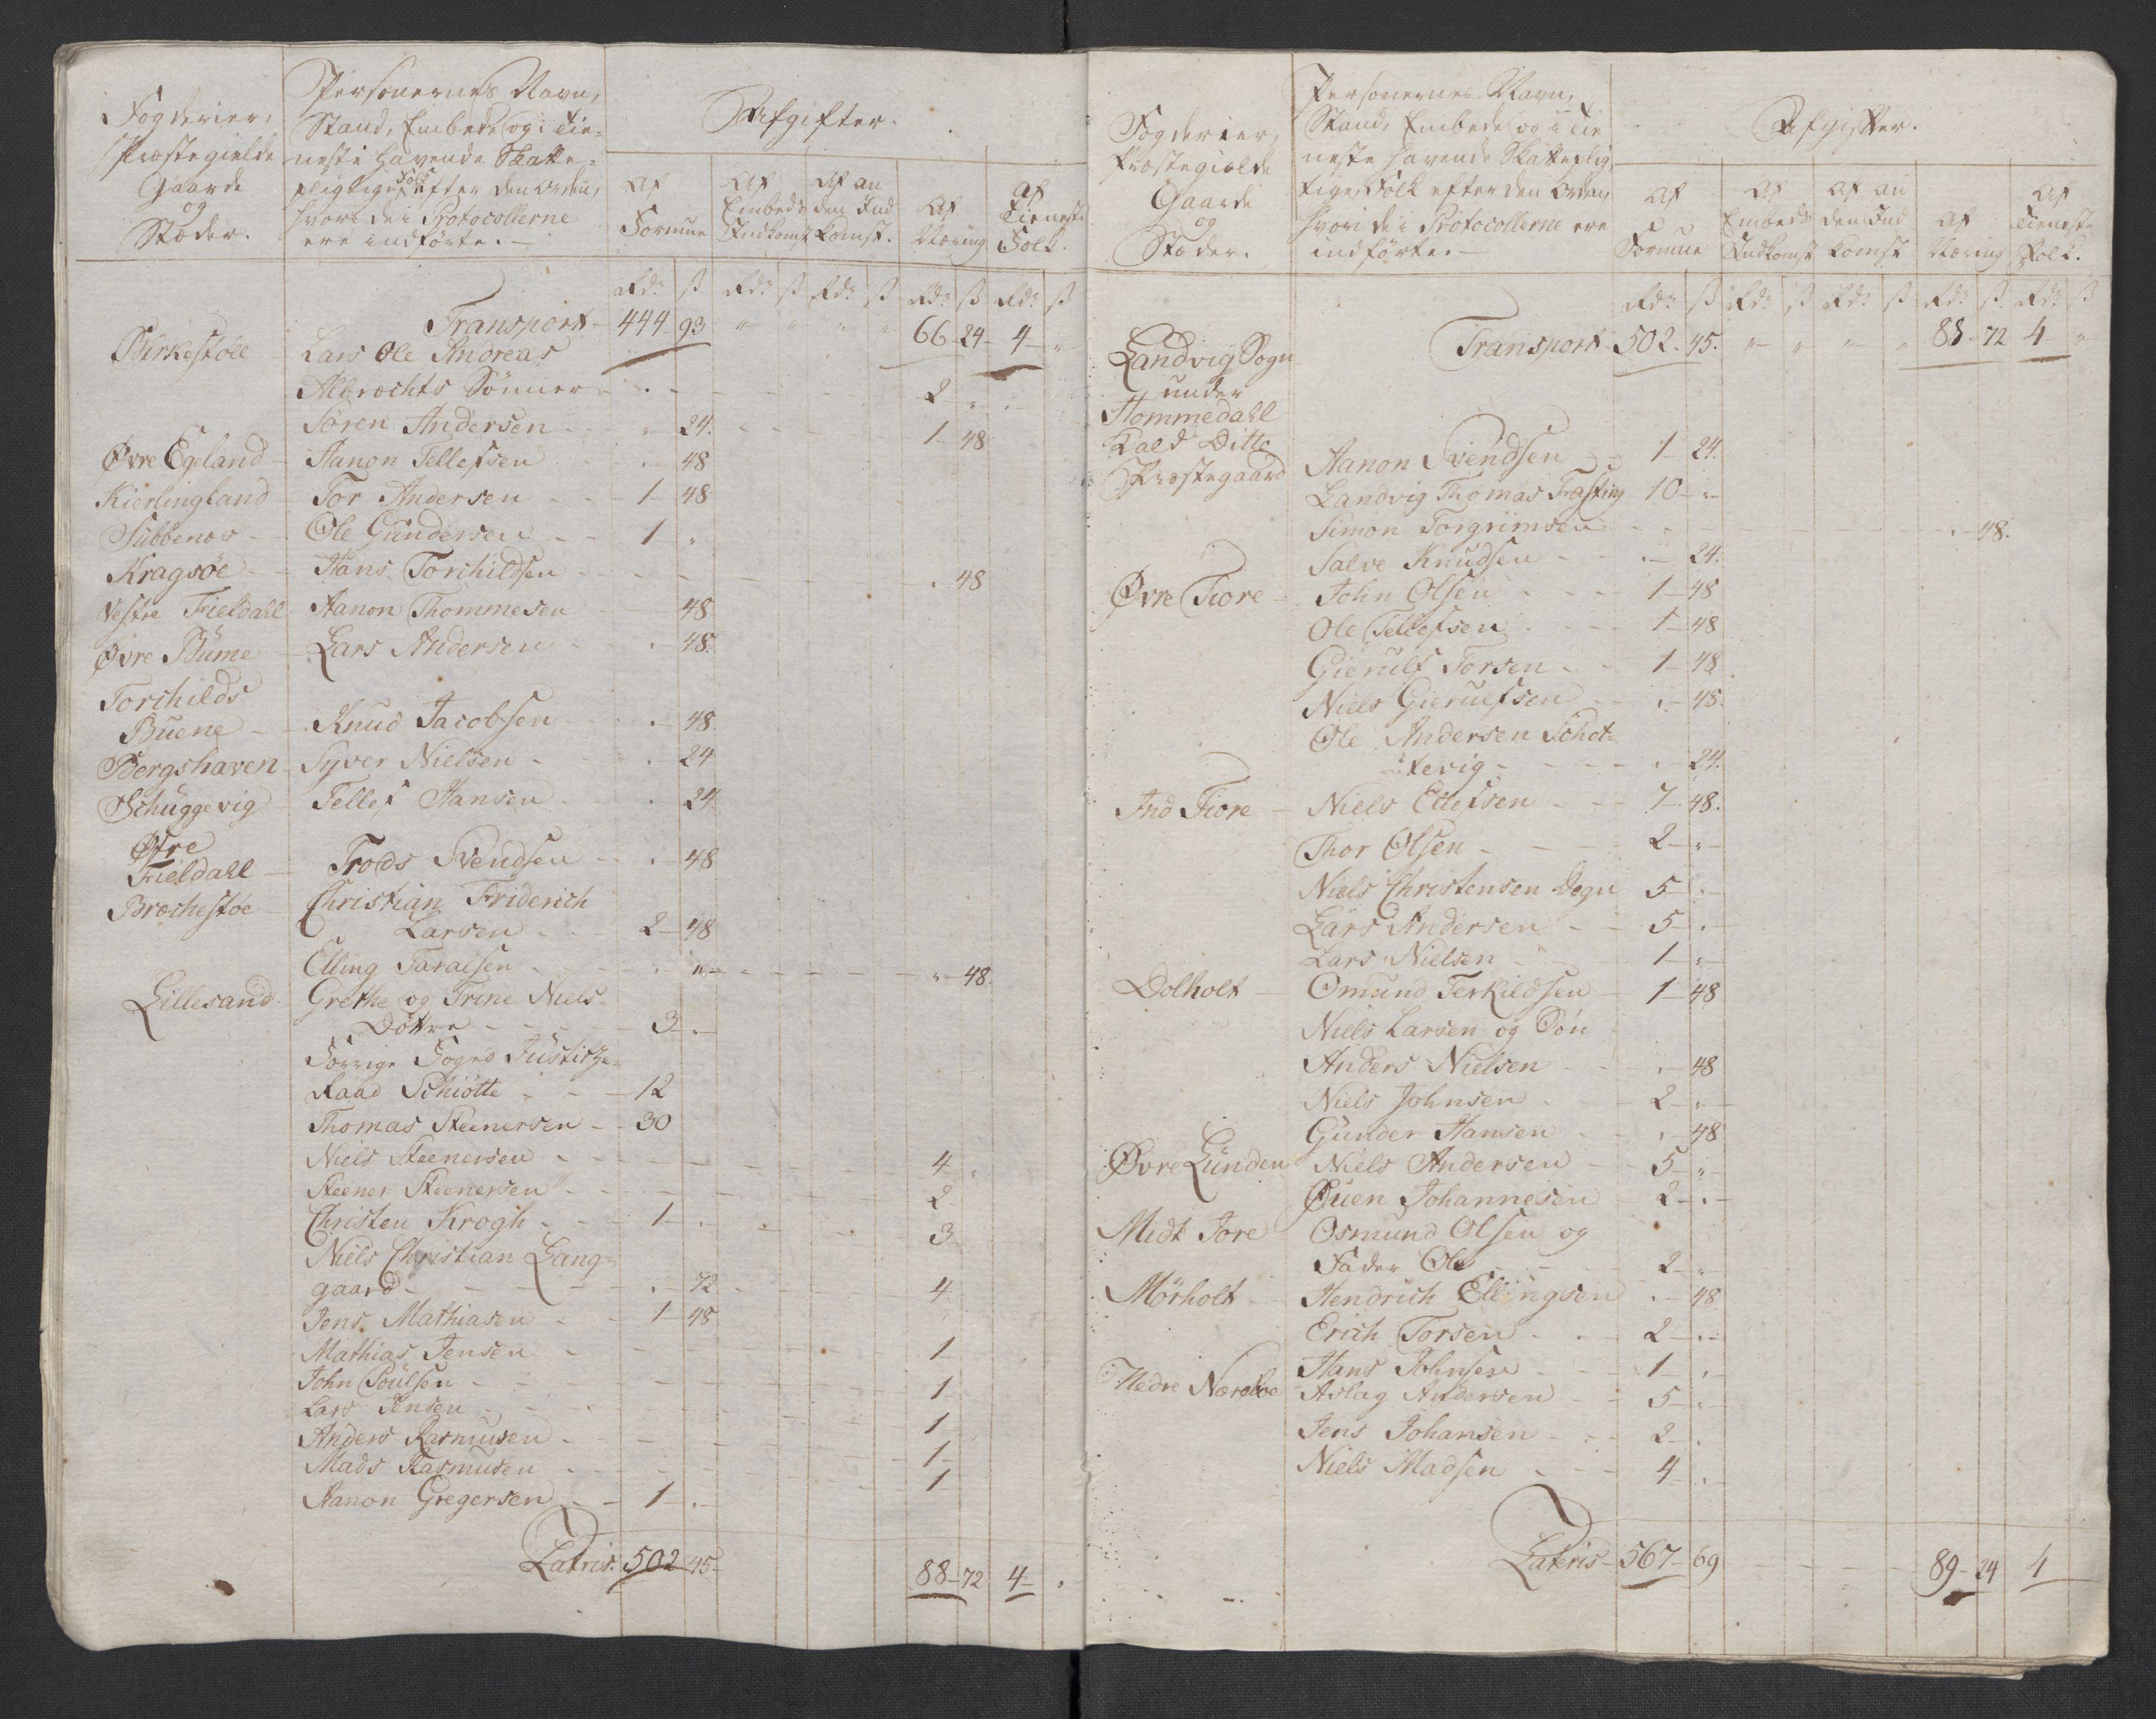 Fogderier,
Præstegielde
Gaarde
og
Stæder.
Personernes Navn,
Stand, Embede og i Tie-
neste havende Skatte-
pligtige Folk efter den Orden,
hvori de i Protocollerne
ere indførte.
Afgifter.
Af Formue
Af Embeds Indkomst
Af an den Ind komst.
Af Næring
Af Tieneste Folk.
Rdr ß Rdr ß Rdr ß Rdr ß Rdr ß
Transport 444 93 " " " " 66 24 4 "
Birkestøll Lars Ole Andreas
Albrechts Sønner 2 "
Søren Andersen " 24. 1 48
Øvre Egeland Aanon Tellefsen 48
Kierlingland Tor Andersen 1 48
Sübbenæs Ole Gundersen 1 "
Kragsøe Hans Torchildsen 48
Vestre Frieldahl Aanon Thommesen 48
Øvre Büme Lars Andersen 48.
Torchilds
Buene Knud Jacobsen 48
Bergshaven Syver Nielsen 24
Schuggevig Tellef Hansen 24
Østre
Frieldahl Trods Svendsen 48
Brochestøe Christian Friderich
Larsen 2 48
Elling Taraldsen " 48.
Lillesand Grethe og Trine Niels-
Døttre 3
Forrige Foged Justitz-
Raad Schiøtte 12
Thomas Steenersen 30
Niels Steenersen 4 "
Steener Steenersen 2
Christen Krogh 1 3
Niels Christian Lang-
gaard 72 4
Jens Mathiasen 1 48
Mathias Jensen 1
John Poulsen 1
Lars Jensen
Anders Rasmusen 1
Mads Rasmusen 1
Aanon Gregersen 1 1
Latris. 502 45 88 72 4
Fogderier,
Præstegielde
Gaarde
og
Stæder.
Personernes Navn,
Stand, Embede og i Tie
neste havende Skatteplig
tige Folk efter den Orden,
hvori de i Protocollerne ere
indførte.
Afgifter.
Af Formue
Af Embeds Indkomst
Af an den Ind komst
Af Næring
Af Tieneste Folk.
Rdr ß Rdr ß Rdr ß Rdr ß Rdr ß
Transport 502. 45. " " " " 88 72 4 "
Landvig Sogn
under
Hommedahl
Kald Ditto
Præstegaard
Aanon Svendsen 1 24.
Landvig Thomas Frasting 10 "
Simon Torgrimsen 48.
Salve Knudsen 24.
Øvre Fiore John Olsen 1 48
Ole Tellefsen 1 48
Gierulf Torsen 1 48
Niels Gierulfsen 48.
Ole Andersen Schot-
tevig 24.
Ind Fiore Niels Ellefsen 7 48.
Thor Olsen 2 "
Niels Christensen Degn 5
Lars Andersen 5
Lars Nielsen 1 "
Dolholt Omund Terkildsen 1 48
Niels Larsen og Søn
Anders Nielsen 48
Niels Johnsen 2 "
Gunder Hansen 48
Øvre Lunden Niels Andersen 5 "
Øuen Johannesen 2
Midt Fore Osmund Olsen og
Fader Ole 2
Mørholt Hendrich Ellingsen 48
Erich Torsen 2
Nedre Næroloe Hans Johnsen 1
Aslag Andersen 5 "
Jens Johansen 2
Niels Madsen 4
Lateris 567 69 89 24 4